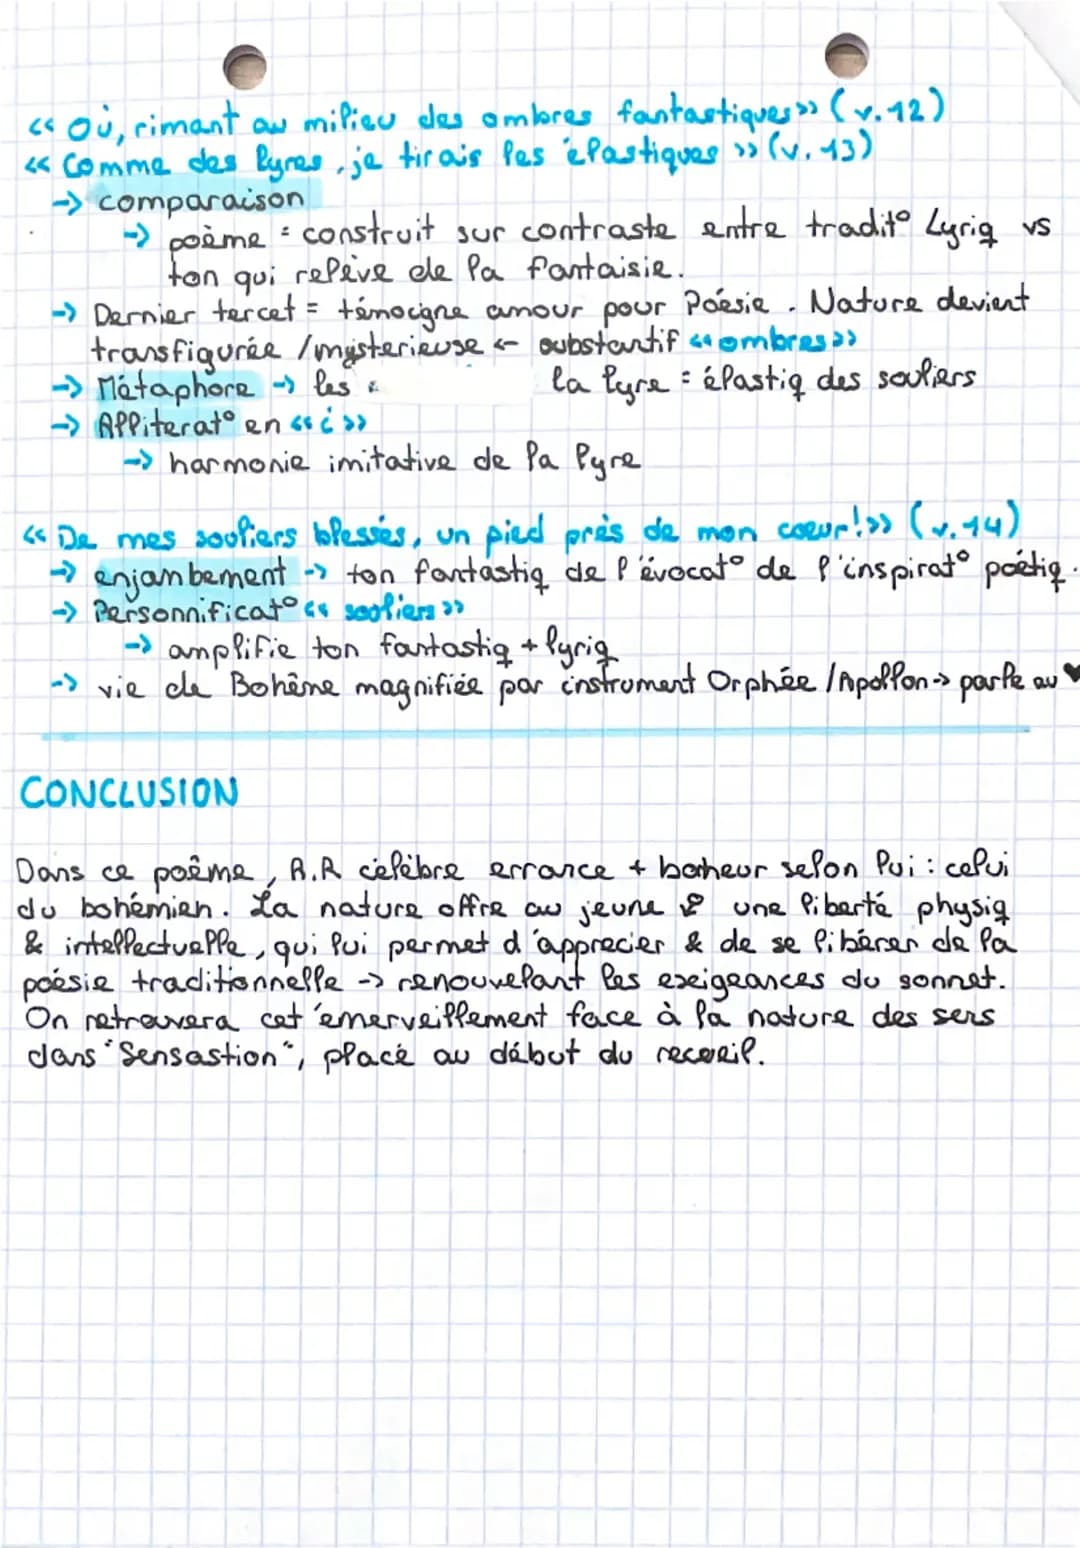 « Où, rimant au milieu des ombres fantastiques » (v.12)
« Comme des lyres, je tirais les élastiques » (v.13)
-> comparaison
-> poème = construit sur contraste entre tradit° Lyriq vs
ton qui relève de la fantaisie.
-> Dernier tercet = témoigne amour pour Poésie. Nature devient
transfigurée / mysterieuse <- substantif « ombres »
-> Métaphore -> les la lyre = élastiq des souliers
-> Alliterat° en « i »
-> harmonie imitative de la lyre
« De mes souliers blessés, un pied près de mon coeur! » (v.14)
-> enjambement -> ton fantastiq de l'évocat° de l'inspirat° poétiq.
-> Personnificat° « souliers »
-> amplifie ton fantastiq + lyriq
-> vie de Bohême magnifiée par instrument Orphée / Apollon -> parle au ♥
CONCLUSION
Dans ce poême, A.R célèbre errance + bonheur selon lui : celui
du bohémien. La nature offre au jeune une liberté physiq
& intellectuelle, qui lui permet d'apprecier & de se libérer de la
poésie traditionnelle -> renouvelant les exigeances du sonnet.
On retrouvera cet émerveillement face à la nature des sens
dans "Sensastion", placé au début du recueil.